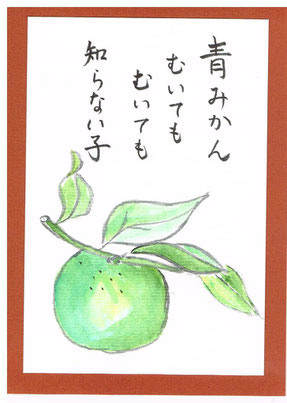 青みかん
むいても
むいても
知らない子